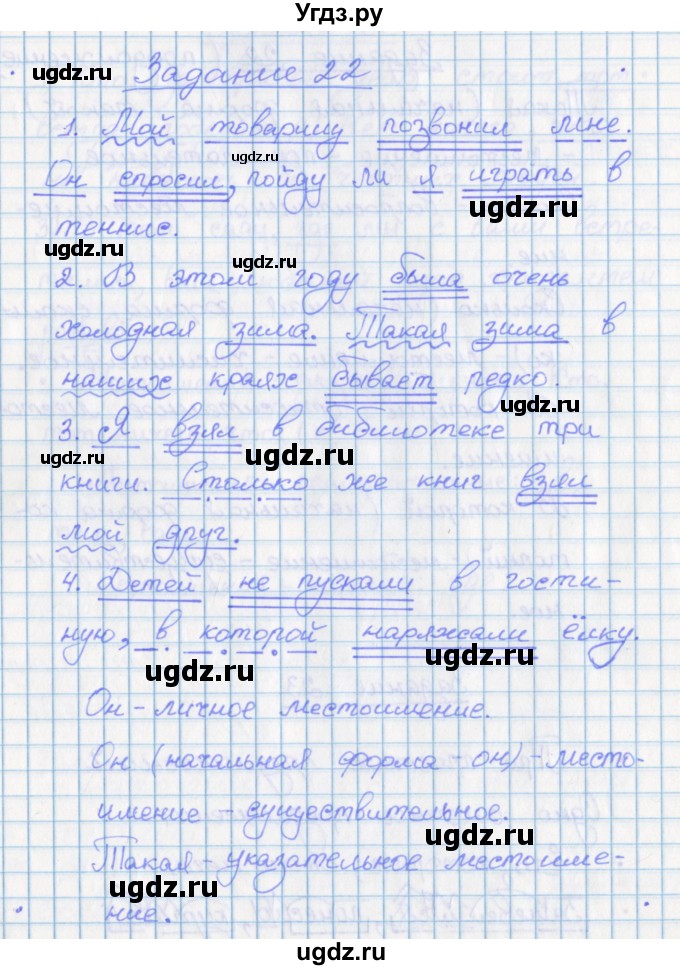 Угдз.ру
ugdz.ru ugdz.ru
Задание 22
1. Мой товарищ позвонил мне.
ugdz.ru
Он спросил, пойду ли я играть в
ugdz.ru
теннис.
ugdz.ru ugdz.ru
2. В этом году была очень
холодная зима. Такая зима в
ugdz.ru
наших краях бывает редко.
3. Я взял в библиотеке три
ugdz.ru ugdz.ru
книги. Столько же книг взял
мой друг.
ugdz.ru
4. Детей не пускали в гости-
ную, в которой наряжали ёлку.
ugdz.ru ugdz.ru
Он - личное местоимение.
Он (начальная форма - он) - место-
имение - существительное.
ugdz.ru
Такая - указательное местоиме-
ugdz.ru
ние.
ugdz.ru